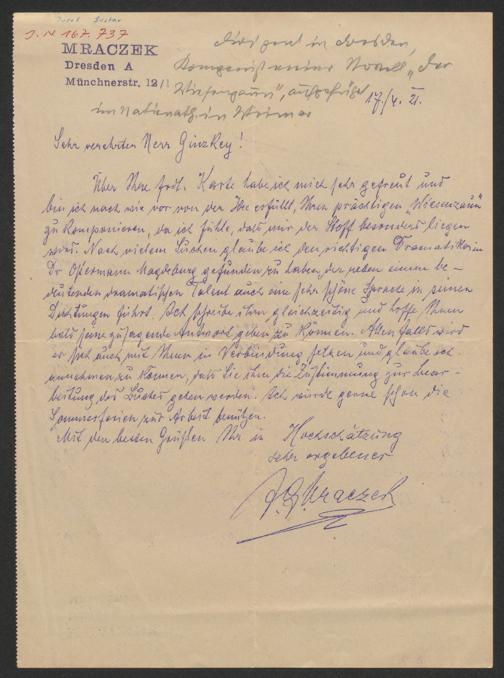 Josef Gustav
I. N 167.737
MRACZEK
Dresden A
Münchnerstr. 12/I
Dirigent in Dresden,
Komponist meiner Novelle „Der
Wiesenzaun“, aufgeführt
im Nationalth. in Weimar
17./4. 21.
Sehr verehrter Herr Ginzkey!
Über Ihre frdl. Karte habe ich mich sehr gefreut und
bin ich nach wie vor von der Idee erfüllt, Ihren prächtigen „Wiesenzaun“
zu komponieren, da ich fühle, dass mir der Stoff besonders liegen
wird. Nach vielem Suchen glaube ich den richtigen Dramatiker in
Dr Ostermann Magdeburg gefunden zu haben, der neben einem be-
deutenden dramatischen Talent auch eine sehr schöne Sprache in seinen
Dichtungen führt. Ich schreibe ihm gleichzeitig und hoffe, Ihnen
bald seine zusagende Antwort geben zu können. Allen falls wird
er sich auch mit Ihnen in Verbindung setzen und glaube ich
annehmen zu können, dass Sie ihm die Zustimmung zur Bear-
beitung des Buches geben werden. Ich würde gerne schon die
Sommerferien zur Arbeit benützen.
Mit den besten Grüßen Ihr in Hochschätzung
sehr ergebener
J. G. Mraczek